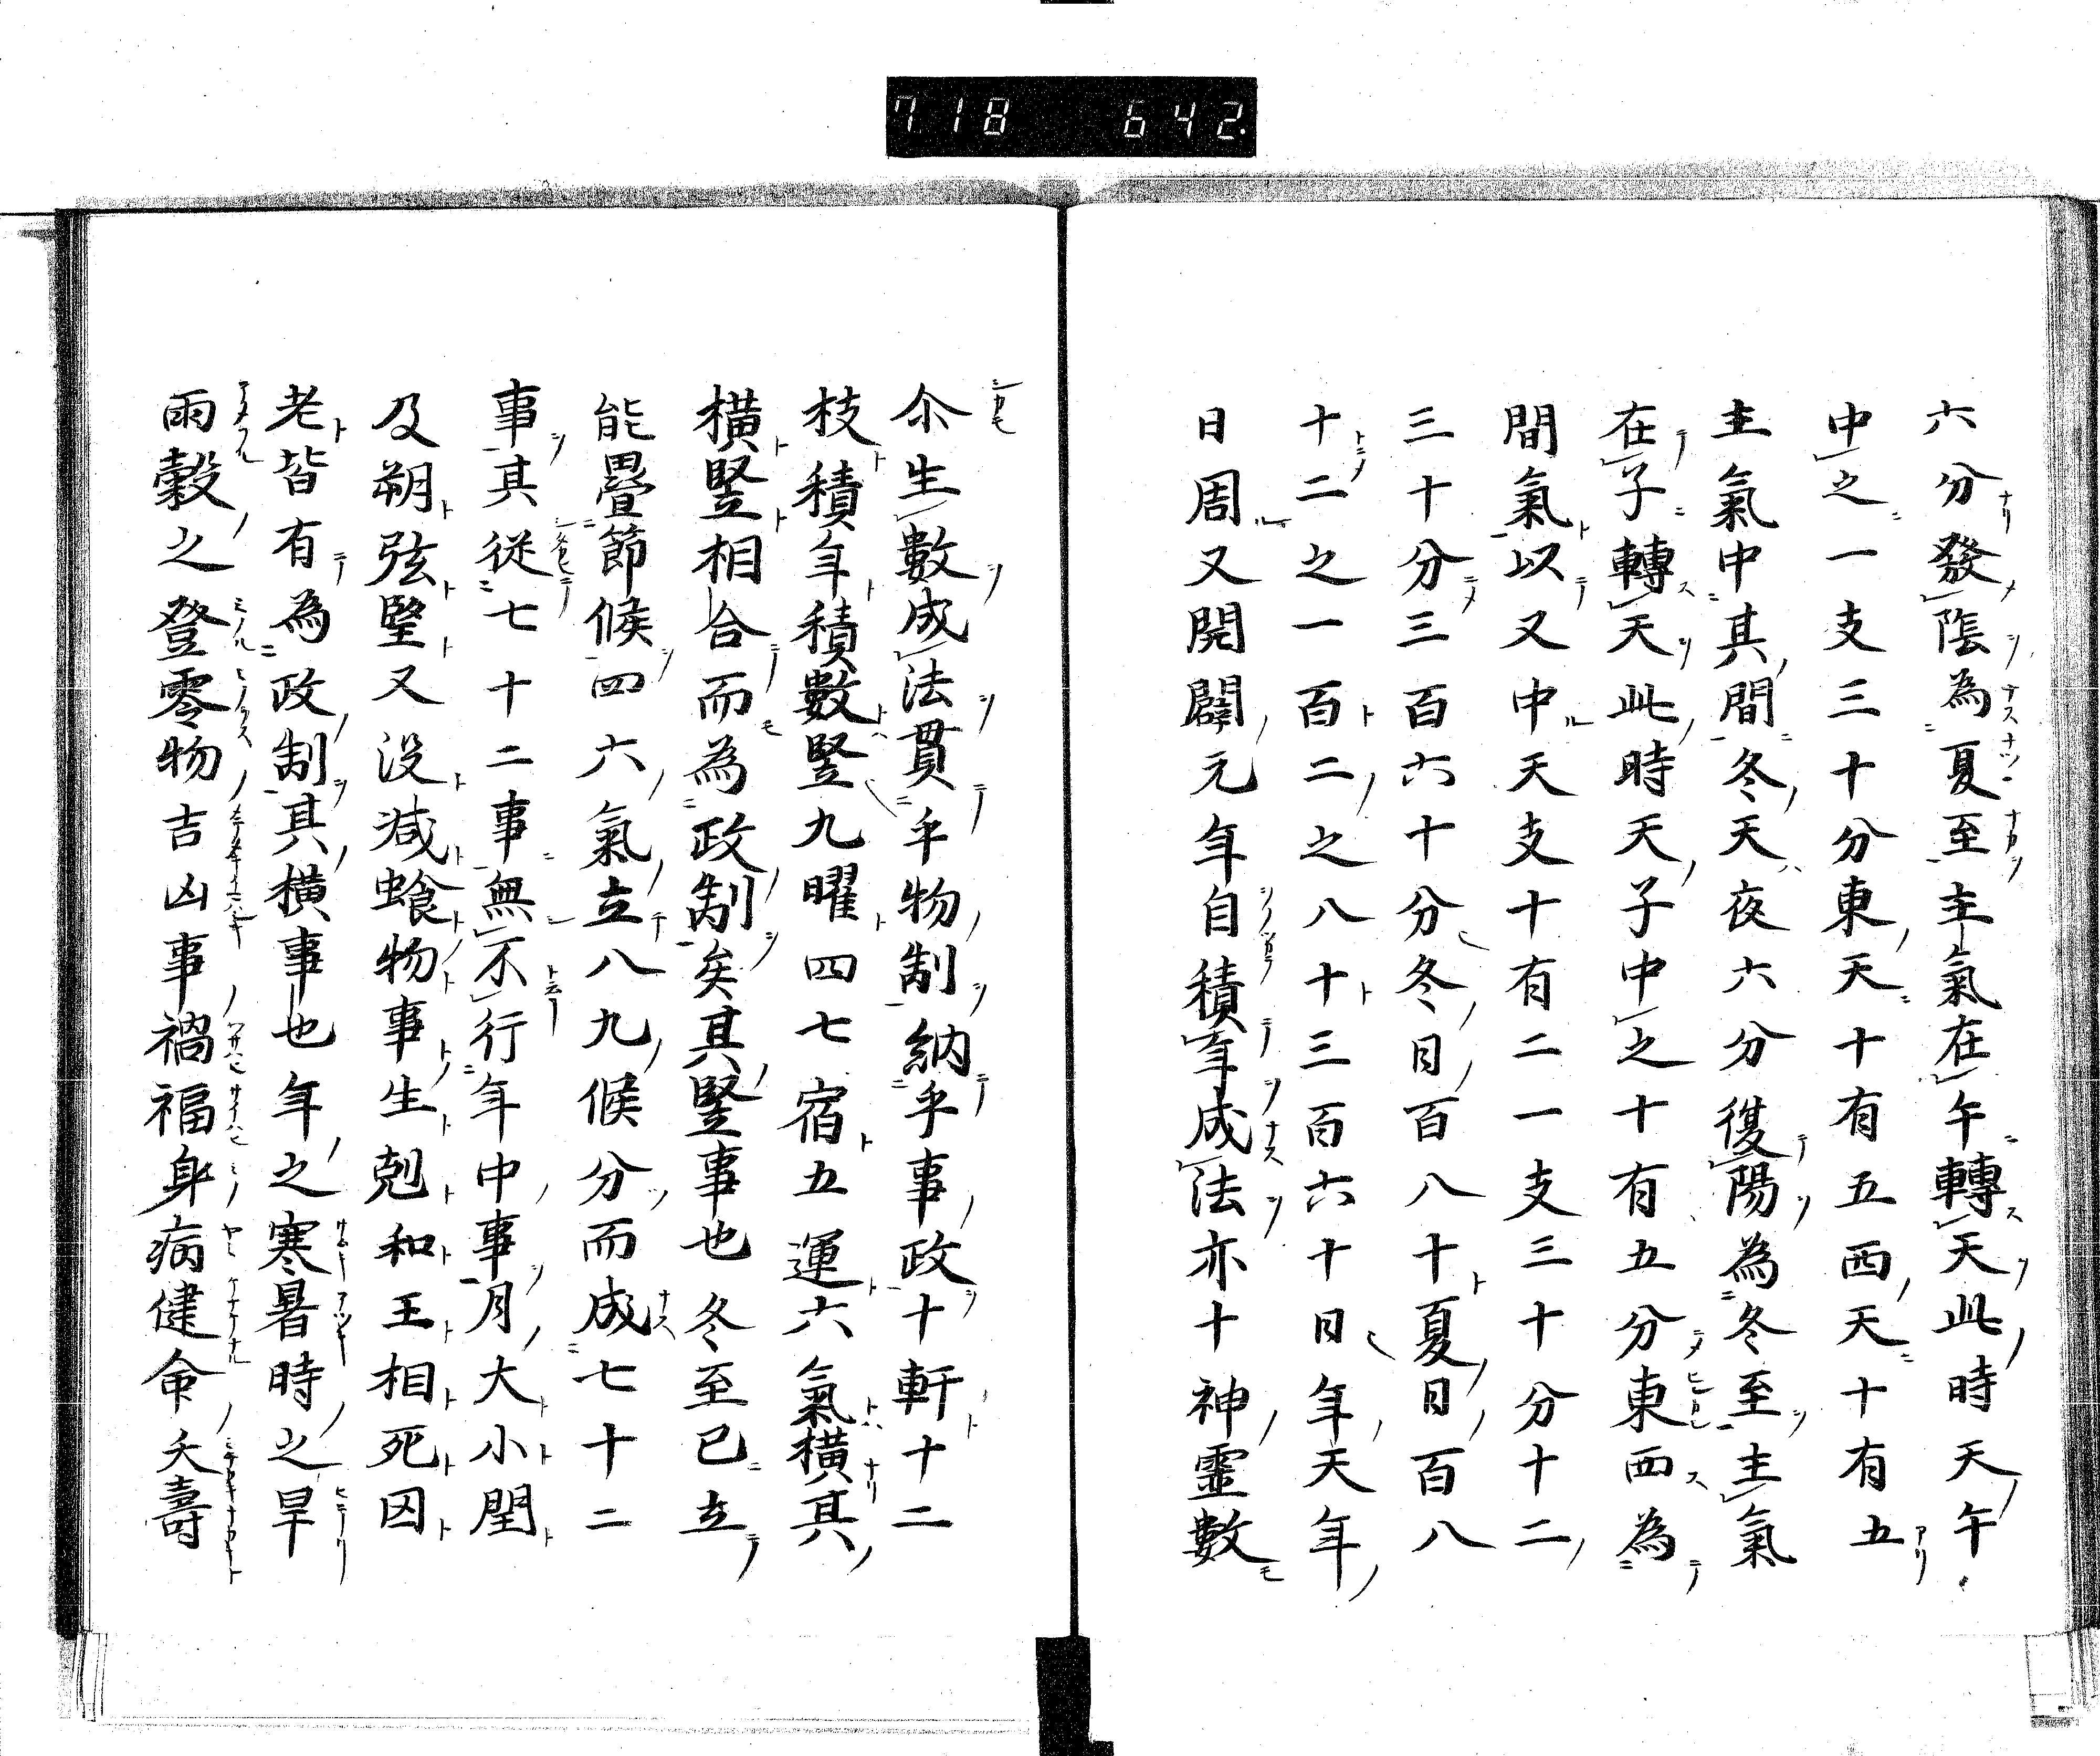 718 642.
六分發陰為夏至主氣在午轉天此時天午
中之一支三十分東天十有五西天十有五
主氣中其間冬天夜六分復陽為冬至主氣
在子轉天此時天子中之十有五分東西為
間氣以又中天支十有二一支三十分十二
三十分三百六十分冬日百八十夏日百八
十二之一百二之八十三百六十日年天年
日周又開闢元年自積年成法亦十神靈數
尒生數成法貫乎物制納乎事政十軒十二
枝積年積數竪九曜四七宿五運六氣横其
横竪相合而為政制矣其竪事也冬至已立
能疊節候四六氣立八九候分而成七十二
事其從七十二事無不行年中事月大小閏
及朔弦望又没減蝕物事生剋和王相死囚
老皆有為政制其横事也年之寒暑時之旱
雨穀之登零物吉凶事禍福身病健命夭壽